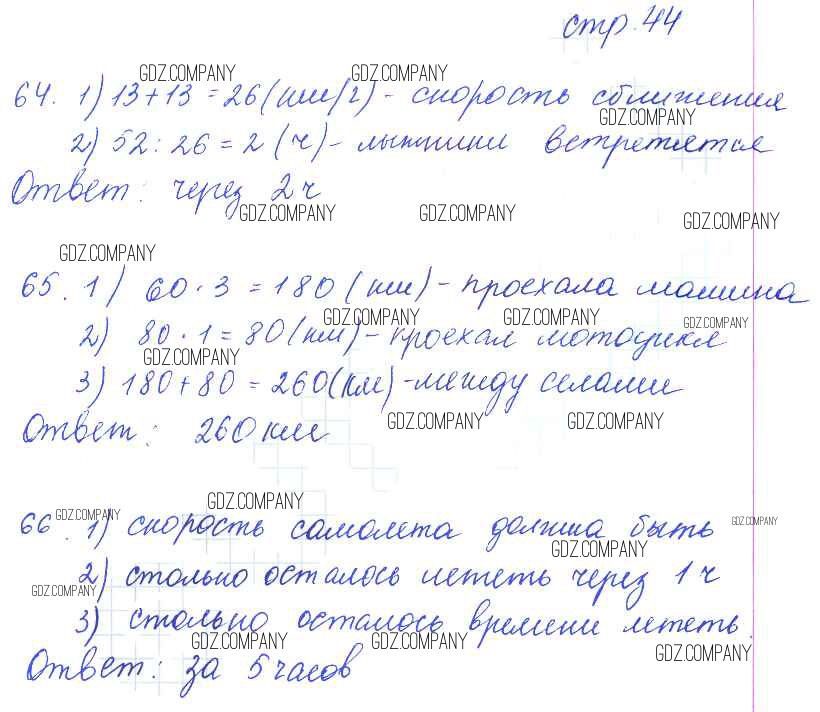 стр. 44
GDZ.COMPANY GDZ.COMPANY
64. 1) 13 + 13 = 26 (км/ч) - скорость сближения
GDZ.COMPANY
2) 52 : 26 = 2 (ч) - лыжники встретятся
Ответ: через 2 ч
GDZ.COMPANY GDZ.COMPANY GDZ.COMPANY
GDZ.COMPANY
65. 1) 60 · 3 = 180 (км) - проехала машина
GDZ.COMPANY GDZ.COMPANY GDZ.COMPANY
2) 80 · 1 = 80 (км) - проехал мотоцикл
GDZ.COMPANY
3) 180 + 80 = 260 (км) - между селами
GDZ.COMPANY GDZ.COMPANY
Ответ: 260 км
GDZ.COMPANY
GDZ.COMPANY GDZ.COMPANY
66. 1) скорость самолета должна быть
GDZ.COMPANY
2) столько осталось лететь через 1 ч
GDZ.COMPANY
3) столько осталось времени лететь.
GDZ.COMPANY GDZ.COMPANY GDZ.COMPANY
Ответ: за 5 часов